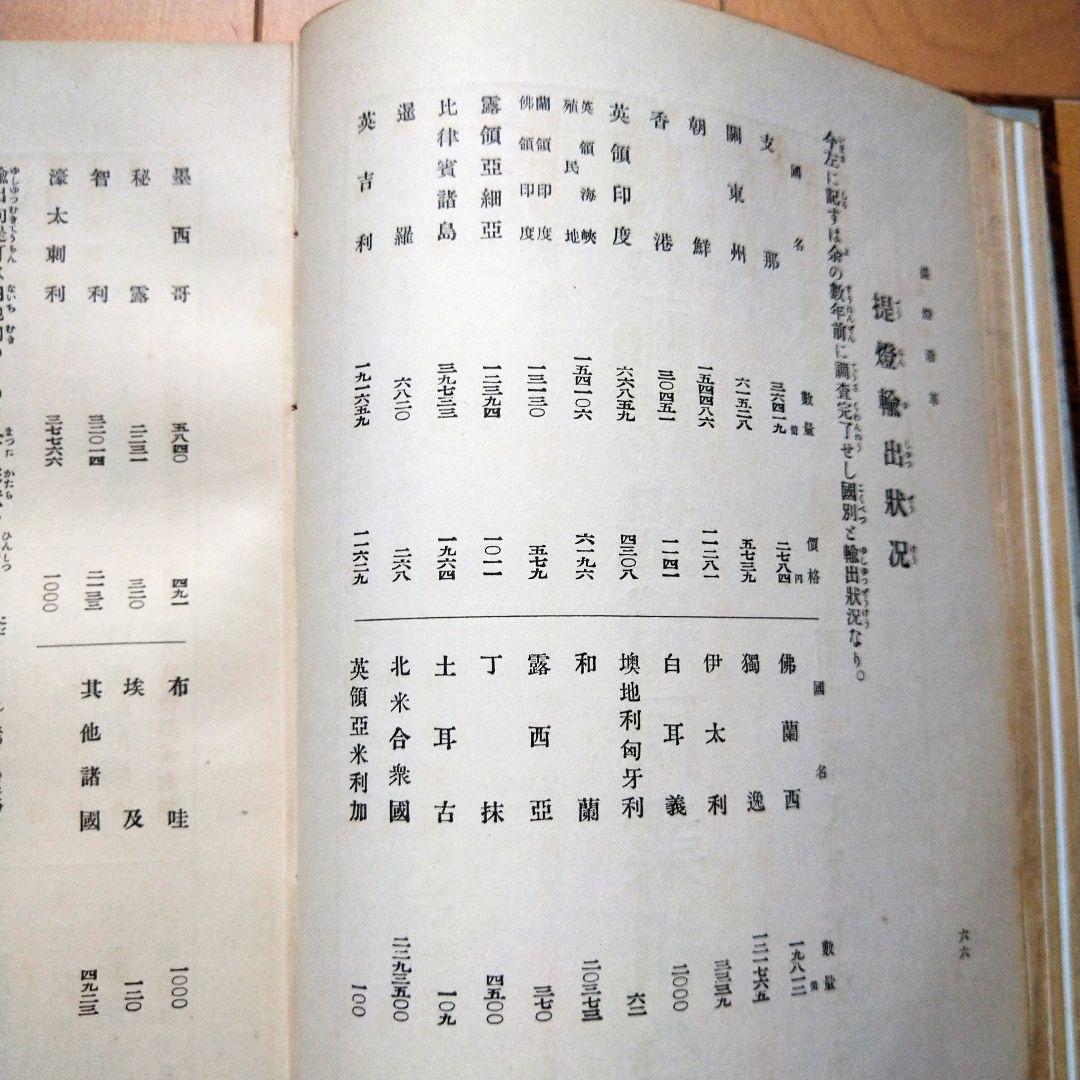 提燈沿革
提燈輸出狀況
今左に記すは余の數年前に調査完了せし國別と輸出狀況なり。
國名 數量 價格
支那 三六四一九個 二七八四円
關東州 六一五二八 五七三九
朝鮮 一五四四八六 一一二八一
香港 三〇四五一 一一二四一
英領印度 六六八五九 四三〇八
英領海峽殖民地 一五四一〇六 六一九六
蘭領印度 佛領印度 一三一三〇 五七九
露領亞細亞 一二三九四 一〇一一
比律賓諸島 三九七三三 一九六四
暹羅 六八二〇 二六八
英吉利 一九一六五九 一一六二九
國名 數量
佛蘭西 一九八一二個
獨逸 一二一七六五
伊太利 三三三九
白耳義 二〇〇〇
墺地利匈牙利 六二
和蘭 二〇三七三
露西亞 三七〇
丁抹 四五〇〇
土耳古 一〇九
北米合衆國 二二九三五〇〇
英領亞米利加 一〇〇
六六
墨西哥 五八四〇 四九一
秘露 二三一 三三〇
智利 三二〇一四 二一三三
濠太剌利 三七七六六 一〇〇〇
布哇 一〇〇〇
埃及 一二〇
其他諸國 四九二三